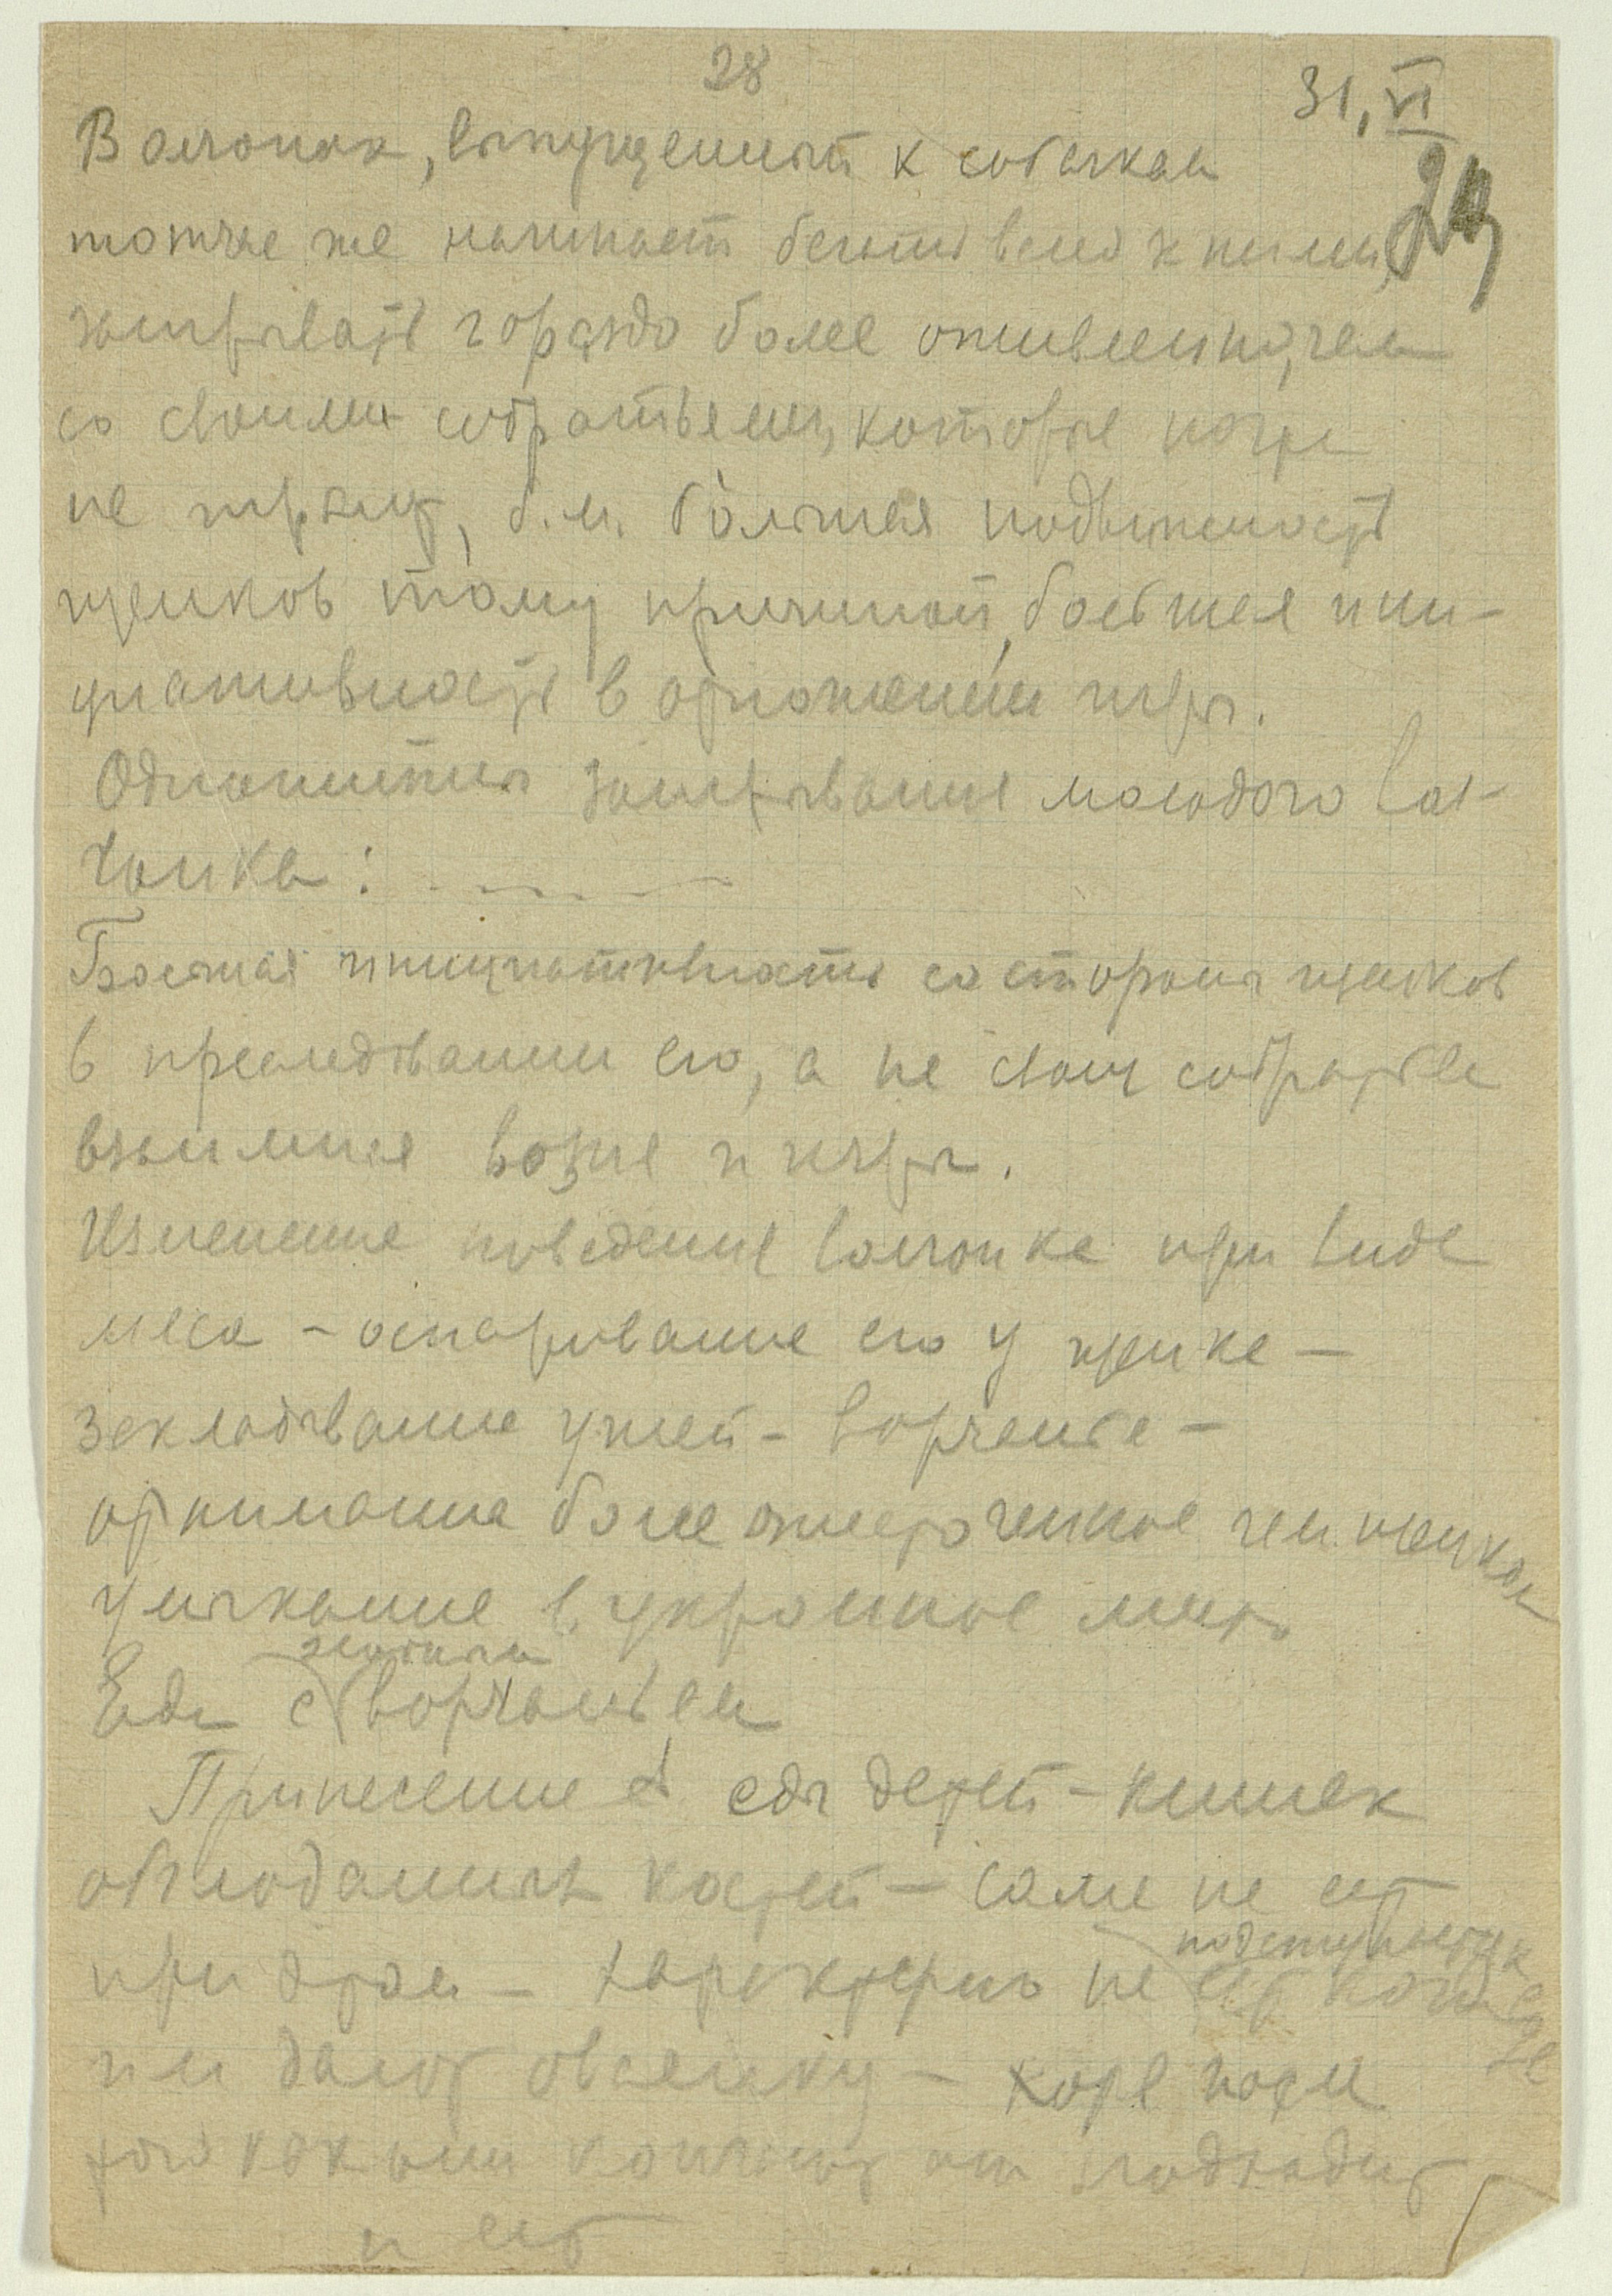 28
31, VI
29
Волчонок, выпущенный к собачкам
тотчас же начинает бегать вслед за ними,
заигрывать гораздо более оживленно, чем
со своими собратьями, которые почти
не играют, б.м. большая подвижность
щенков тому причиной, большая ини-
циативность в отношении игры.
Однотипны заигрывание молодого вол-
чонка:
Большая инициативность со стороны щенков
в преследовании его, а не свои собратья
взаимные возне и игры.
Изменение поведения волчонка при виде
мяса – оспаривание его у щенка –
закладывание ушей – ворчанье –
отнимание более ожесточенное чем щенком
умыкание в укромное место
Еда с злобным ворчаньем
Принесение еды детей – кишек
обглоданных костей – сами не ест
при этом – характерно не подступается к еде когда
им дают овсянку – хотя после
того как они кончают он подходит
и ест